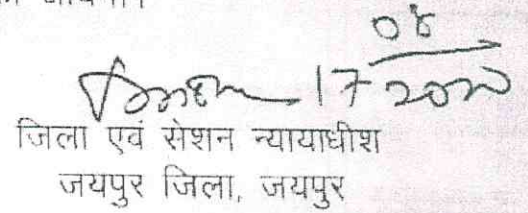 17 2020
जिला एवं सेशन न्यायाधीश
जयपुर जिला, जयपुर